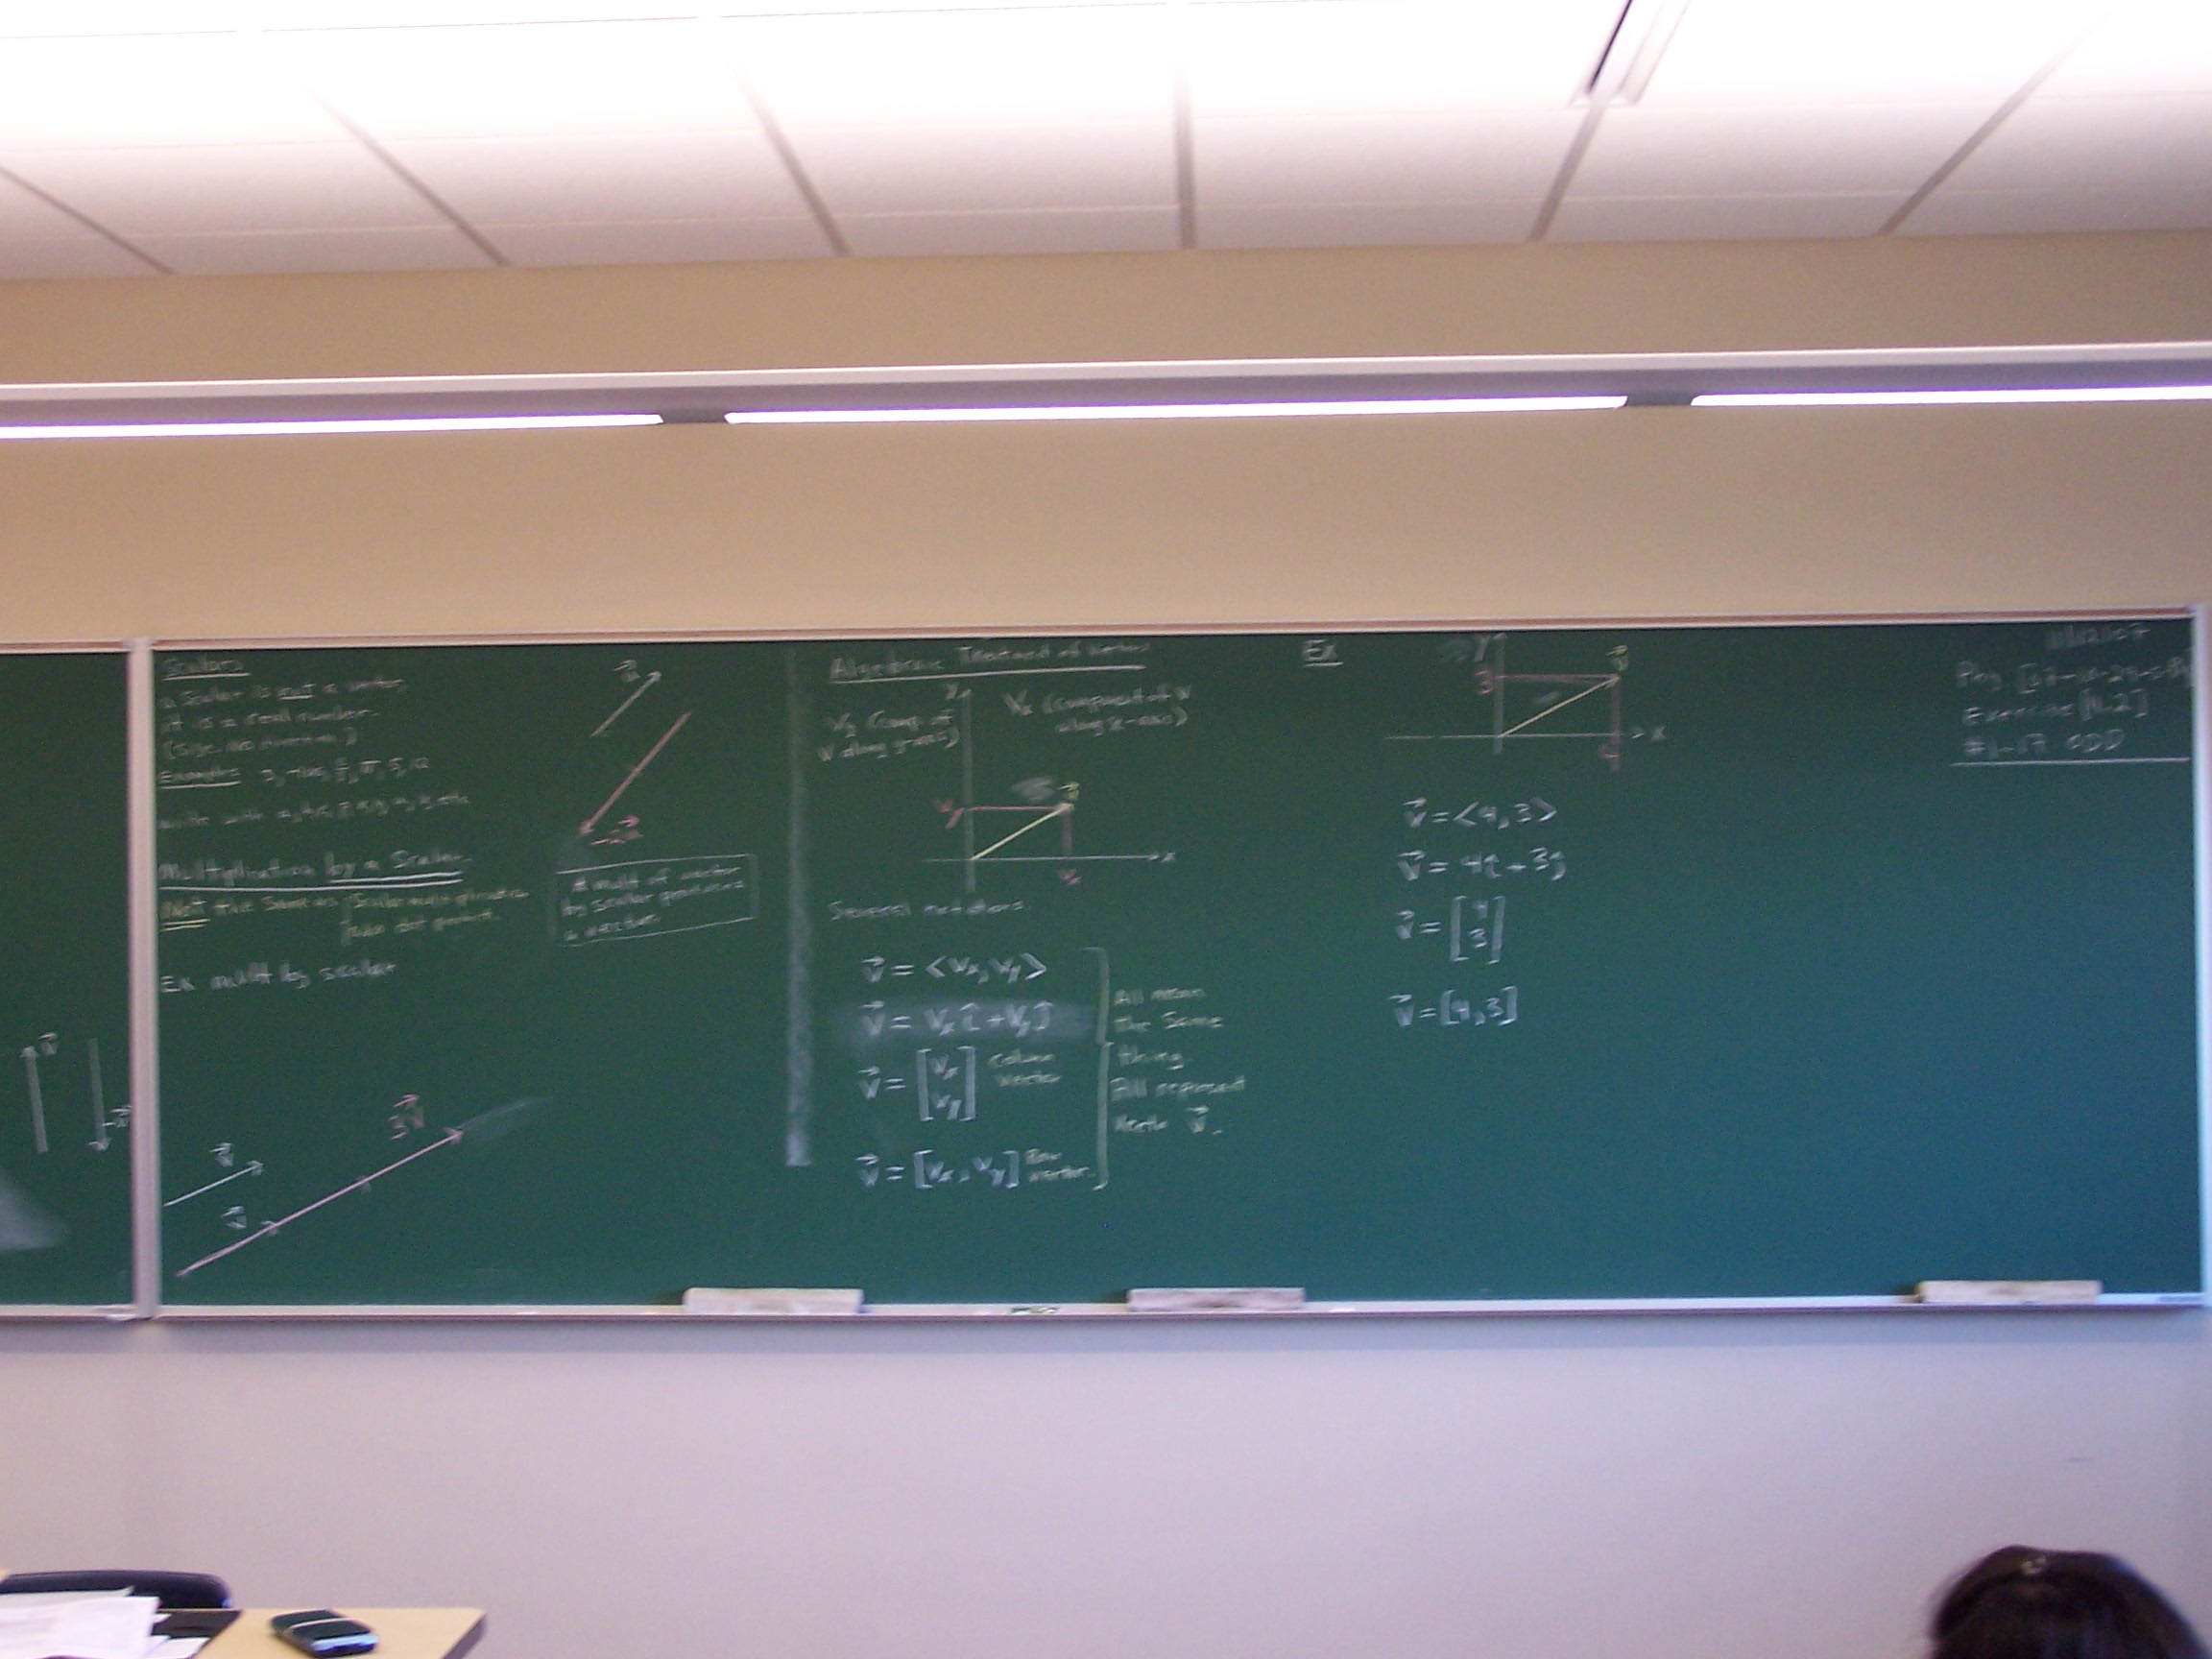 v⃗
Scalars
A Scalar is not a vector,
it is a real number.
(Size. No direction.)
Examples
write with
Multiplication by a Scalar
Not the same as Scalar multiplication
dot product.
Ex mult by scalar
v⃗
3v⃗
v⃗
a⃗
-2a⃗
A mult of vector
by scalar produces
a vector.
Algebraic Treatment of Vectors
y
Vy (comp. of
V along y-axis)
Vx (component of V
along x-axis)
Vy
v⃗
x
Vx
Several notations.
v⃗ = <Vx, Vy>
v⃗ = Vx î + Vy ĵ
v⃗ = [Vx
Vy] column
vector
v⃗ = [Vx, Vy] Row
vector.
All mean
the same
thing.
All represent
Vector v⃗.
Ex
y
3
v⃗
x
4
v⃗ = <4, 3>
v⃗ = 4î + 3ĵ
v⃗ = [4
3]
v⃗ = [4, 3]
Exercise [11.2]
#1-17 ODD